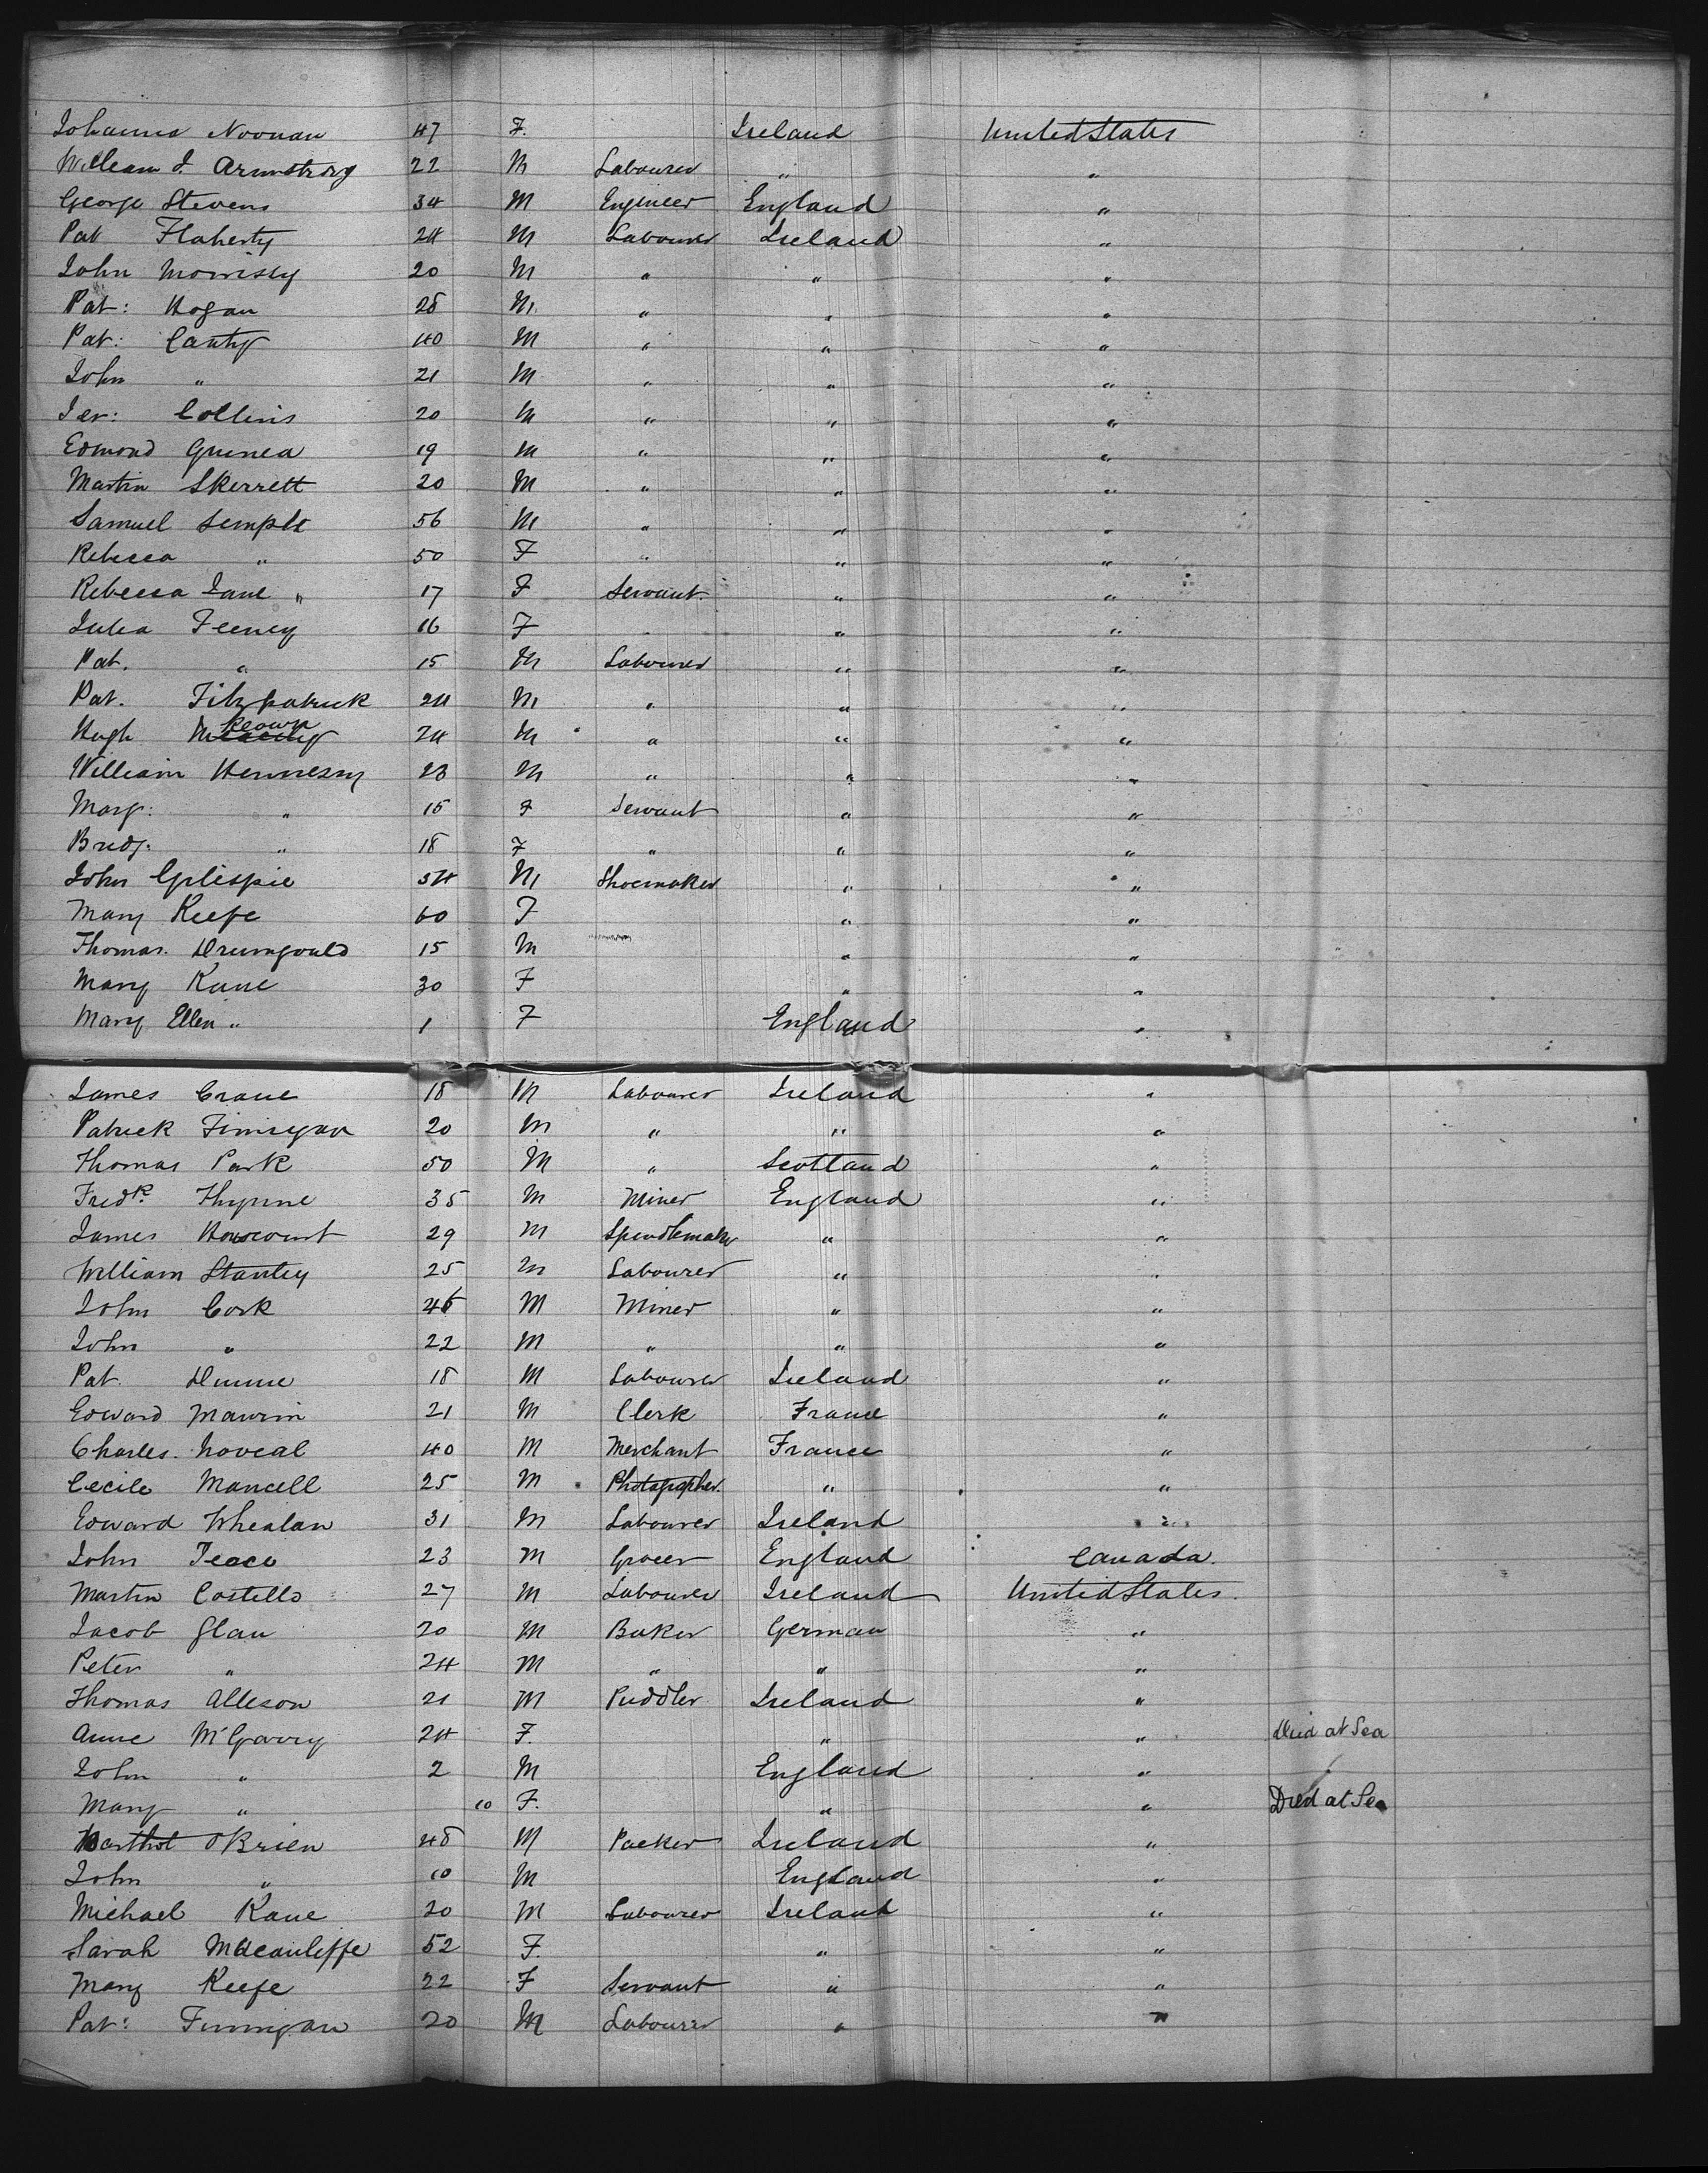 Johanna Noonan 47 F. Ireland United States
William J. Armstrong 22 M Labourer " "
George Stevens 34 M Engineer England "
Pat Flaherty 24 M Labourer Ireland "
John Morrissy 20 M " " "
Pat: Hogan 28 M " " "
Pat: Canty 40 M " " "
John " 21 M " " "
Jer: Collins 20 M " " "
Edmond Guinea 19 M " " "
Martin Skerrett 20 M " " "
Samuel Semple 56 M " " "
Rebecca " 50 F " " "
Rebecca Jane " 17 F Servant " "
Julia Feeney 16 F " "
Pat. " 15 M Labourer " "
Pat. Fitzpatrick 24 M " " "
Hugh McKeown 24 M " " "
William Hennessy 23 M " " "
Marg: " 15 F Servant " "
Bridg: " 18 F " " "
John Gilespie 34 M Shoemaker " "
Mary Keefe 60 F " "
Thomas. Drumgould 15 M " "
Mary Kane 30 F " "
Mary Ellen " 1 F England "
James Crane 18 M Labourer Ireland "
Patrick Finnigan 20 M " " "
Thomas Park 50 M " Scotland "
Fredk. Thynne 35 M Miner England "
James 29 M Spindlemaker " "
William Stanley 25 M Labourer " "
John Cork 46 M Miner " "
John " 22 M " " "
Pat. Dunne 18 M Labourer Ireland "
Edward Maurin 21 M Clerk France "
Charles. Noveal 40 M Merchant France "
Cecile Mancell 25 M Photographer. " "
Edward Whealan 31 M Labourer Ireland "
John Peace 23 M Grocer England Canada.
Martin Costello 27 M Labourer Ireland United States.
Jacob Glau 20 M Baker German "
Peter " 24 M " " "
Thomas Alleson 21 M Puddler Ireland "
Anne McGarry 24 F. " " Died at Sea
John " 2 M England "
Mary " 10 F. " " Died at Sea
Barthol O'Brien 48 M Packer Ireland "
John " 10 M England "
Michael Kane 20 M Labourer Ireland "
Sarah Macauleffe 52 F. " "
Mary Keefe 22 F Servant " "
Pat: Finnigan 20 M Labourer " "